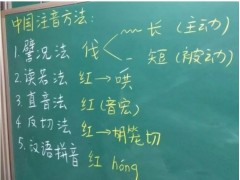 中国注音方法:
长(主动)
1.譬况法 伐
短(被动)
2.读若法 红→哄
3.直音法 红(音宏)
4.反切法 红→胡笼切
5.汉语拼音 红 hóng